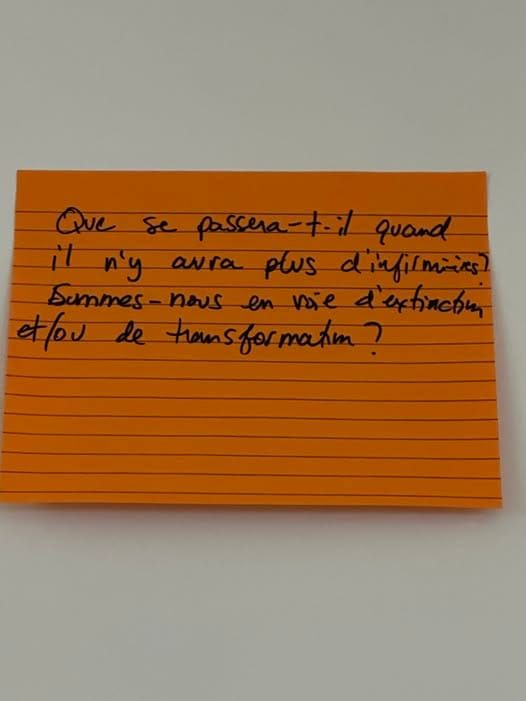 Que se passera-t-il quand
il n'y aura plus d'infirmières?
Sommes-nous en voie d'extinction
et/ou de transformation?